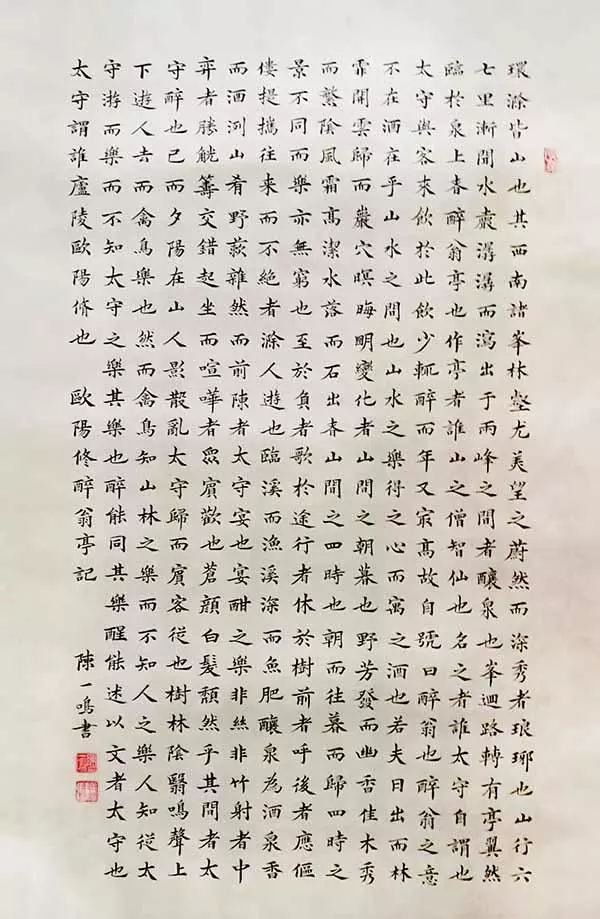 環滁皆山也其西南諸峯林壑尤美望之蔚然而深秀者琅琊也山行六
七里漸聞水聲潺潺而瀉出于兩峰之間者釀泉也峯迴路轉有亭翼然
臨於泉上者醉翁亭也作亭者誰山之僧智仙也名之者誰太守自謂也
太守與客來飲於此飲少輒醉而年又冣高故自號曰醉翁也醉翁之意
不在酒在乎山水之間也山水之樂得之心而寓之酒也若夫日出而林
霏開雲歸而巖穴暝晦明變化者山間之朝暮也野芳發而幽香佳木秀
而繁陰風霜高潔水落而石出者山間之四時也朝而往暮而歸四時之
景不同而樂亦無窮也至於負者歌於途行者休於樹前者呼後者應傴
僂提攜往来而不絕者滁人遊也臨溪而漁溪深而魚肥釀泉為酒泉香
而酒洌山肴野蔌雜然而前陳者太守宴也宴酣之樂非絲非竹射者中
弈者勝觥籌交錯起坐而喧嘩者眾賓歡也蒼顏白髮頹然乎其間者太
守醉也已而夕陽在山人影散亂太守歸而賓客從也樹林陰翳鳴聲上
下遊人去而禽鳥樂也然而禽鳥知山林之樂而不知人之樂人知從太
守游而樂而不知太守之樂其樂也醉能同其樂醒能述以文者太守也
太守謂誰廬陵歐陽脩也 歐陽修醉翁亭記 陳一鳴書